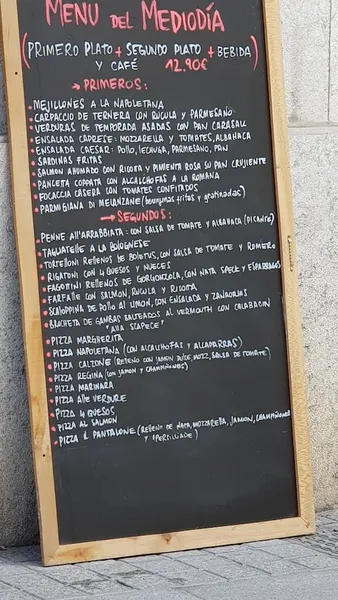 MENU DEL MEDIODÍA
(PRIMERO PLATO + SEGUNDO PLATO + BEBIDA
Y CAFÉ 12.90€)
→ PRIMEROS:
• MEJILLONES A LA NAPOLETANA
• CARPACCIO DE TERNERA CON RUCULA Y PARMESANO
• VERDURAS DE TEMPORADA ASADAS CON PAN CARASAU
• ENSALADA CAPRESE: MOZZARELLA Y TOMATES, ALBAHACA
• ENSALADA CAESAR: POLLO, LECHUGA, PARMESANO, PAN
• SARDINAS FRITAS
• SALMON AHUMADO CON RICOTA Y PIMIENTA ROSA SU PAN CRUJIENTE
• PANCETTA COPPATA CON ALCALCHOFAS A LA ROMANA
• FOCACCIA CASERA CON TOMATES CONFITADOS
• PARMIGIANA DI MELANZANE (berenjenas fritas y gratinadas)
→ SEGUNDOS:
• PENNE ALL'ARRABBIATA: CON SALSA DE TOMATE Y ALBAHACA (PICANTE)
• TAGLIATELLE A LA BOLOGNESE
• TORTELLONI RELLENOS DE BOLETUS, CON SALSA DE TOMATE Y ROMERO
• RIGATONI CON 4 QUESOS Y NUECES
• FAGOTTINI RELLENOS DE GORGONZOLA, CON NATA SPECK Y ESPARRAGOS
• FARFALLE CON SALMON, RUCULA Y RICOTA
• SCALOPPINA DE POLLO AL LIMON, CON ENSALADA Y ZANAHORIAS
• BROCHETA DE GAMBAS SALTEADOS AL VERMOUTH CON CALABACIN
"ALLA SCAPECE"
• PIZZA MARGHERITA
• PIZZA NAPOLETANA (CON ALCALCHOFAS Y ALCAPARRAS)
• PIZZA CALZONE (RELLENO CON JAMON DULCE, MOZZ, SALSA DE TOMATE)
• PIZZA REGINA (CON JAMON Y CHAMPIÑONES)
• PIZZA MARINARA
• PIZZA ALLE VERDURE
• PIZZA 4 QUESOS
• PIZZA AL SALMON
• PIZZA IL PANTALONE (RELLENO DE NATA, MOZZARELLA, JAMON, CHAMPIÑONES
Y ESPECIALIDADE)